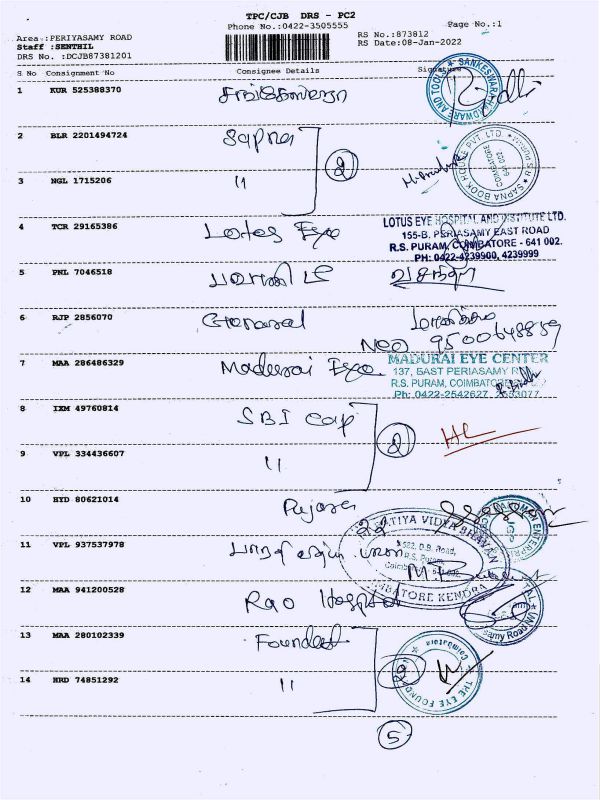 TPC/CJB DRS - PC2
Phone No.: 0422-3505555
Page No.:1
Area :PERIYASAMY ROAD
Staff :SENTHIL
DRS No. :DCJB87381201
RS No.:873812
RS Date:08-Jan-2022
S No Consignment No Consignee Details Signature
1 KUR 525388370
SANKESWARA HARDWARE AND TOOLS
2 BLR 2201494724 Sapna
2
SAPNA BOOK HOUSE PVT. LTD.
COIMBATORE
3 NGL 1715206 "
4 TCR 29165386 Lotus Eye
LOTUS EYE HOSPITAL AND INSTITUTE LTD.
155-B, PERIASAMY EAST ROAD
R.S. PURAM, COIMBATORE - 641 002.
PH: 0422-4239900, 4239999
5 PNL 7046518 வசந்தா
6 RJP 2856070 General
9500648859
7 MAA 286486329 Madurai Eye
MADURAI EYE CENTER
137, EAST PERIASAMY
R.S. PURAM, COIMBATORE
Ph: 0422-2542627,
8 IXM 49760814 SBI Cap
2
9 VPL 334436607 "
10 HYD 80621014 Pujara
11 VPL 937537978
BHARATIYA VIDYA BHAVAN
D.B. Road,
R.S. Puram,
COIMBATORE KENDRA
12 MAA 941200528 Rao Hospital
13 MAA 280102339
2
THE EYE FOUNDATION
Coimbatore
14 HRD 74851292 "
5